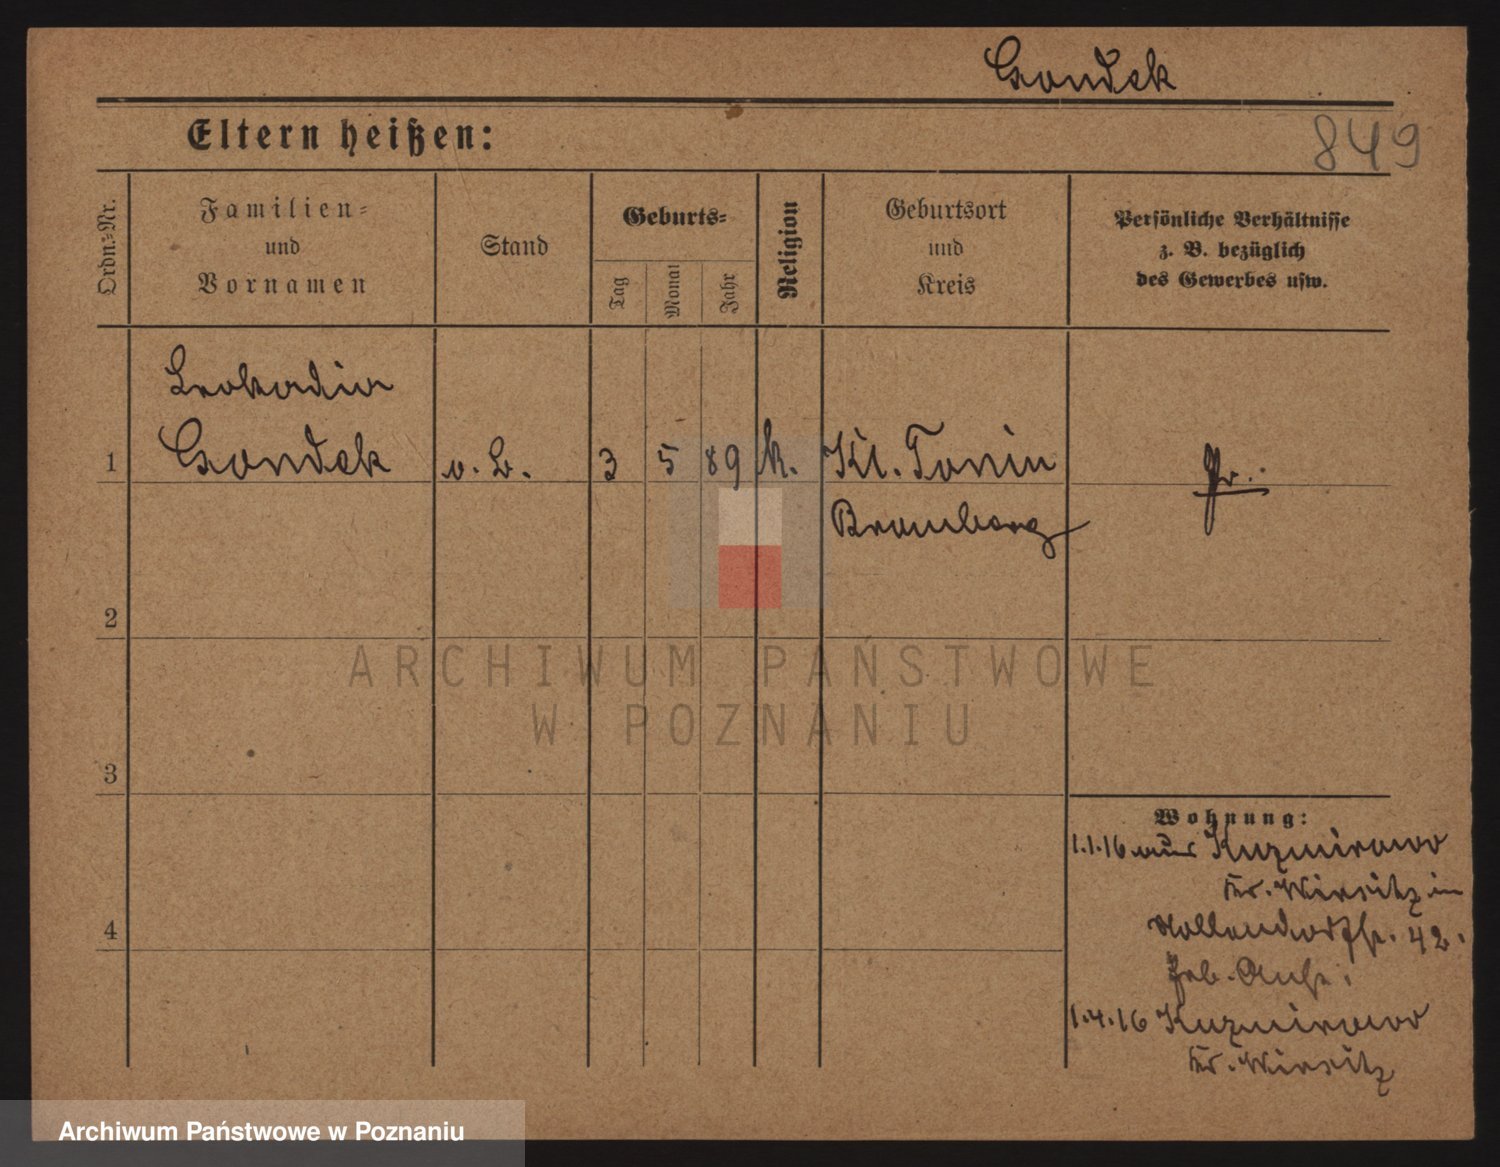 Gondek
Eltern heißen:
849
Ordn.-Nr.
Familien-
und
Vornamen
Stand
Geburts-
Tag
Monat
Jahr
Religion
Geburtsort
und
Kreis
Persönliche Verhältnisse
z. B. bezüglich
des Gewerbes usw.
Leokadia
1 Gondek o. B. 3 5 89 k. Kl. Tonin Pr.
Bromberg
2
3
4
Wohnung:
1.1.16 aus Kuzmirowo
Kr. Wirsitz in
42.
1.4.16 Kuzmirowo
Kr. Wirsitz
ARCHIWUM PAŃSTWOWE
W POZNANIU
Archiwum Państwowe w Poznaniu